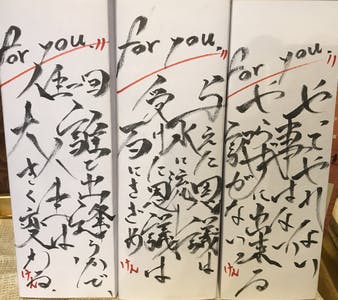 for you.
やってやれない
事はない
やらずに出来る
訳がない
けん
for you.
与えた恩義は
水に流し
受けた恩義は
石にきざめ
けん
for you.
誰と出逢うかで、
人生は
大きく変わる。
けん